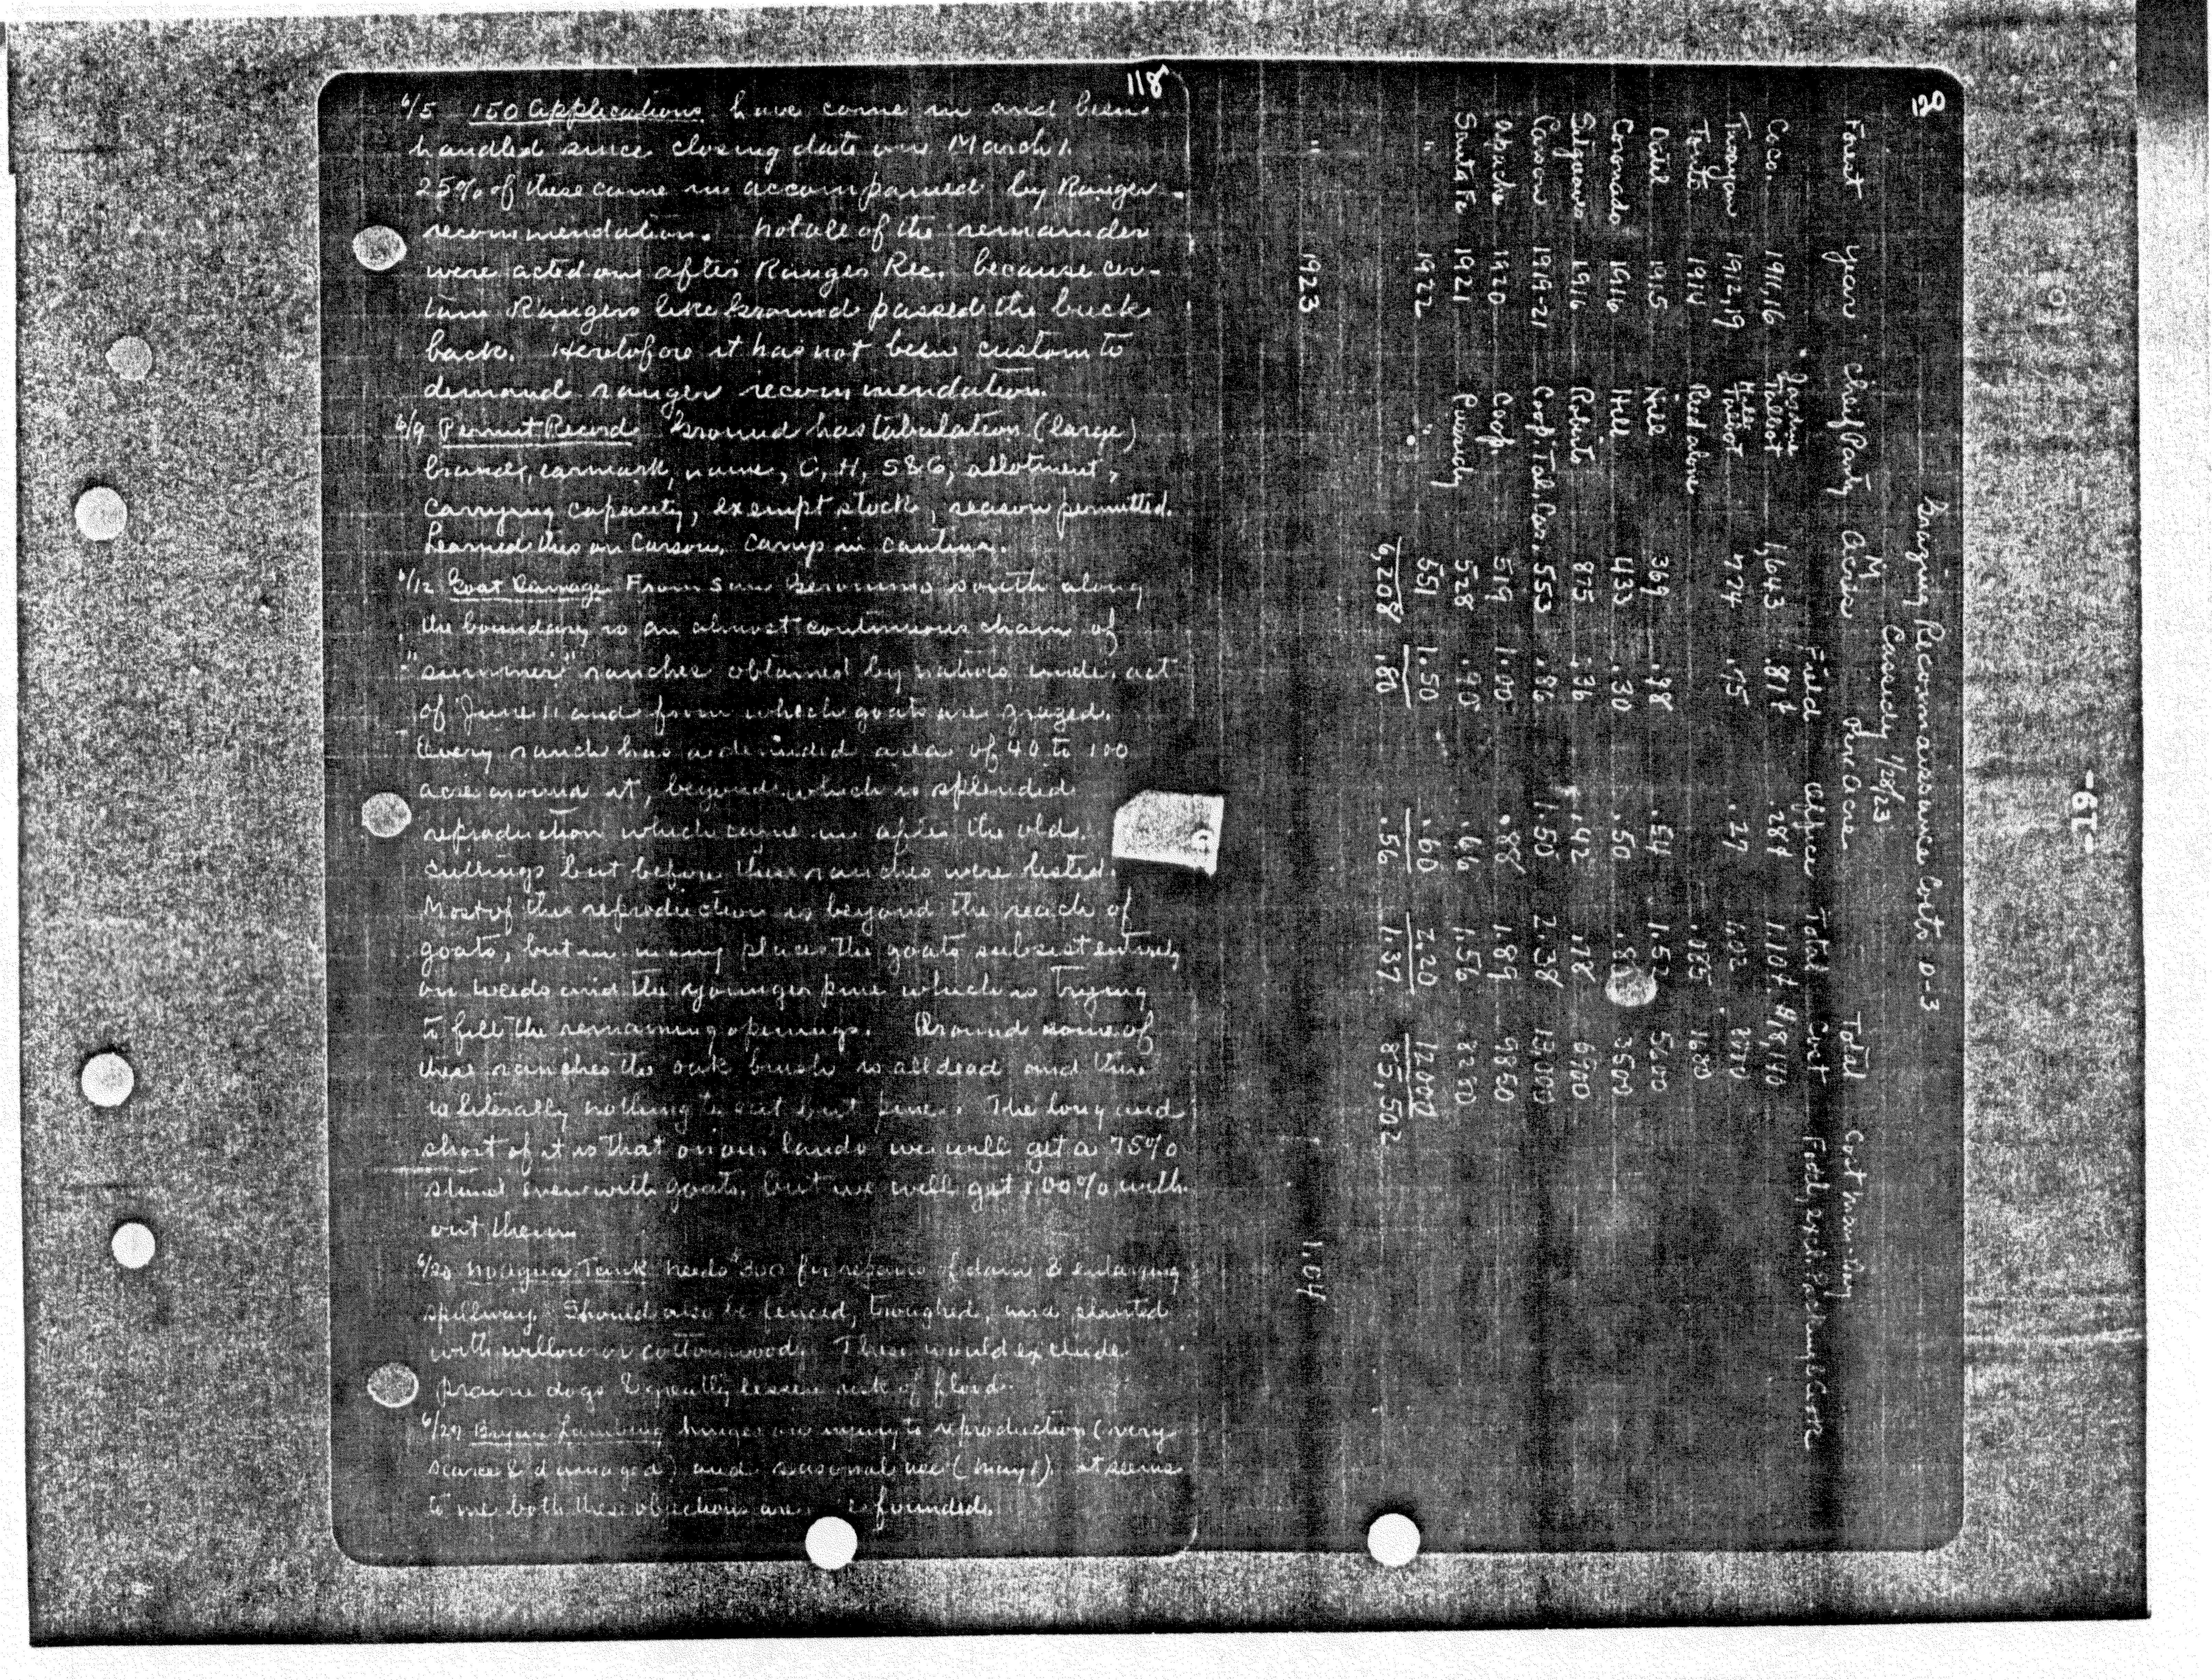 118
6/5 150 Applications have come in and been
handled since closing date on March 1.
25% of these came in accompanied by Ranger
recommendation. Not all of the remainder
were acted on after Ranger Rec. because cer-
tain Rangers like Ground passed the buck
back. Heretofore it has not been custom to
demand ranger recommendation.
6/9 Permit Record Ground has tabulation (large)
brand, earmark, name, C, H, S&G, allotment,
carrying capacity, exempt stock, season permitted.
Learned this on Carson. Carry in
6/12 Goat Damage From San Geronimo south along
the boundary is an almost continuous chain of
"summer" ranches obtained by natives under act
of June 11 and from which goats are grazed.
Every ranch has a denuded area of 40 to 100
acre around it, beyond which is splendid
reproduction which came in after the old
cuttings but before these ranches were listed.
Most of this reproduction is beyond the reach of
goats, but in many places the goats subsist entirely
on weeds and the younger pine which is trying
to fill the remaining openings. Around some of
these ranches the oak brush is all dead and there
is literally nothing to eat but pine. The long and
short of it is that on our lands we will get a 75%
stand even with goats, but we will get 100% with-
out them
6/20 Noagua Tank needs $300 for repairs of dam & enlarging
spillway. Should also be fenced, troughed, and planted
with willow or cottonwood. These would exclude
prairie dogs & greatly lessen risk of flood.
6/27 Lambing hinges on injury to reproduction (very
scarce & damaged) and seasonal use (May 1). It seems
to me both these objections are founded.
120
Grazing Reconnaissance Costs D-3
Cassidy 1/28/23
Forest Year Chief Party M Acres Per Acre Total Cost man-day
Field Office Total Cost
Coco. 1911,16 Talbot 1,643 .817 .287 1.107 $18,140
Tusayan 1912,19 Hill Talbot 774 .75 .27 1.02
Tonto 1914 Read alone .085 1680
Datil 1915 Hill 369 .98 .54 1.52 5600
Coronado 1916 Hill 433 .30 .50 3500
Sitgreaves 1916 Roberts 875 .36 .42 .78 6900
Carson 1919-21 Coop. Tal. Cas. 553 .86 1.50 2.38 13000
Apache 1920 Coop. 519 1.00 .88 1.89 9850
Santa Fe 1921 Cassidy 528 .90 .66 1.56 8250
" 1922 " 551 1.50 .60 2.20 12000
6,208 .80 .56 1.37 85,502
" 1923 1.04
-19-